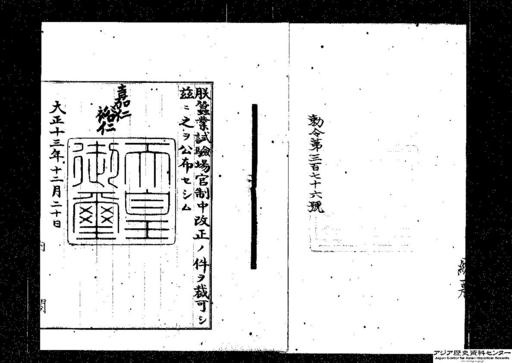 勅令第三百七十六號
朕蠶業試驗場官制中改正ノ件ヲ裁可シ
茲ニ之ヲ公布セシム
嘉仁
裕仁
天皇
御璽
大正十三年十二月二十日
内閣
アジア歴史資料センター
Japan Center for Asian Historical Records